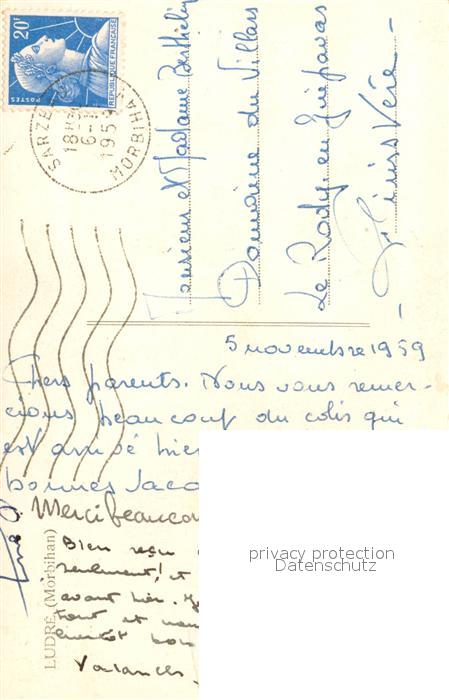 20F
POSTES
REPUBLIQUE FRAÇAISE
SARZE
18H
6-1
195
MORBIHA
Monsieur et Madame Berthelin
Domaine du Villars
Le Rody en Guipavas
Finistère
5 novembre 1959
Chers parents. Nous vous remer-
cions beaucoup du colis qui
est arrivé hier
bonnes
Merci beaucou
Bien reçu
seulement! et
avant hier.
tout et
bientôt
vacances
LUDRÉ (Morbihan)
privacy protection
Datenschutz